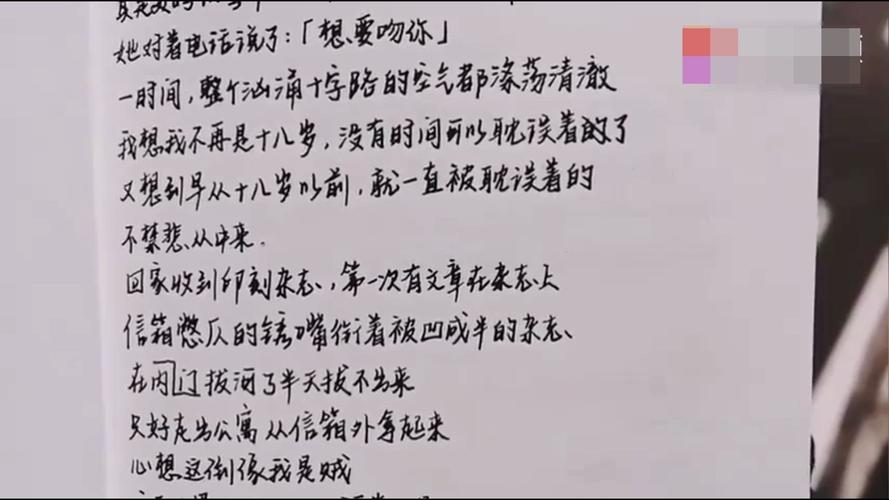 她对着电话说了:「想要吻你」
一时间,整个汹涌十字路的空气都涤荡清澈
我想我不再是十八岁,没有时间可以耽误着的了
又想到早从十八岁以前,就一直被耽误着的
不禁悲从中来.
回家收到印刻杂志,第一次有文章在杂志上
信箱憋仄的锈嘴衔着被凹成半的杂志、
在内门拔河了半天拔不出来
只好走出公寓从信箱外拿起来
心想这倒像我是贼